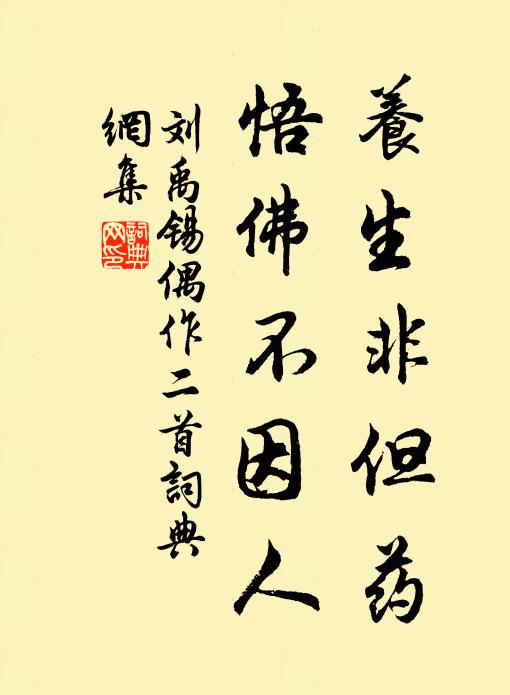 養生非但药
悟佛不因人
刘禹锡偶作二首詞典
網集
詞典
网印